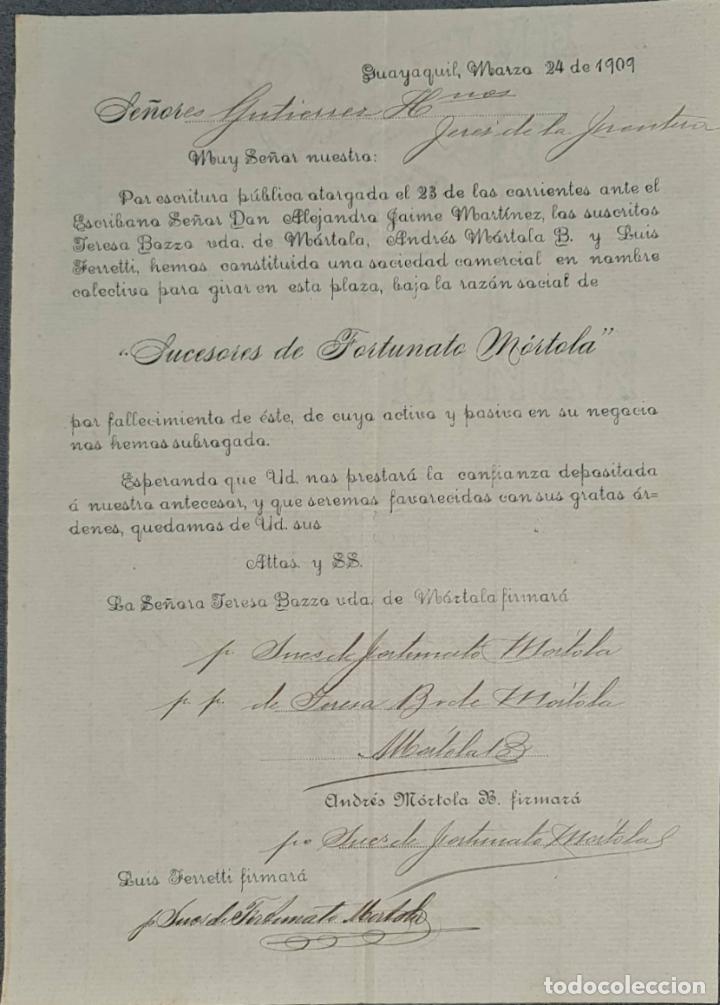 Guayaquil, Marzo 24 de 1909
Señores Gutierrez Hnos
Jerez de la Frontera
Muy Señor nuestro:
Por escritura pública otorgada el 23 de los corrientes ante el
Escribano Señor Don Alejandro Jaime Martínez, los suscritos
Teresa Bozzo vda. de Mórtola, Andrés Mórtola B. y Luis
Ferretti, hemos constituido una sociedad comercial en nombre
colectivo para girar en esta plaza, bajo la razón social de
"Sucesores de Fortunato Mórtola"
por fallecimiento de éste, de cuyo activo y pasivo en su negocio
nos hemos subrogado.
Esperando que Ud. nos prestará la confianza depositada
á nuestro antecesor, y que seremos favorecidos con sus gratas ór-
denes, quedamos de Ud. sus
Attos. y SS.
La Señora Teresa Bozzo vda. de Mórtola firmará
p. Sucs de Fortunato Mórtola
p. p. de Teresa B. v de Mórtola
Mórtola B
Andrés Mórtola B. firmará
po Sucs de Fortunato Mórtola
Luis Ferretti firmará
p. Sucs de Fortunato Mortola
todocoleccion